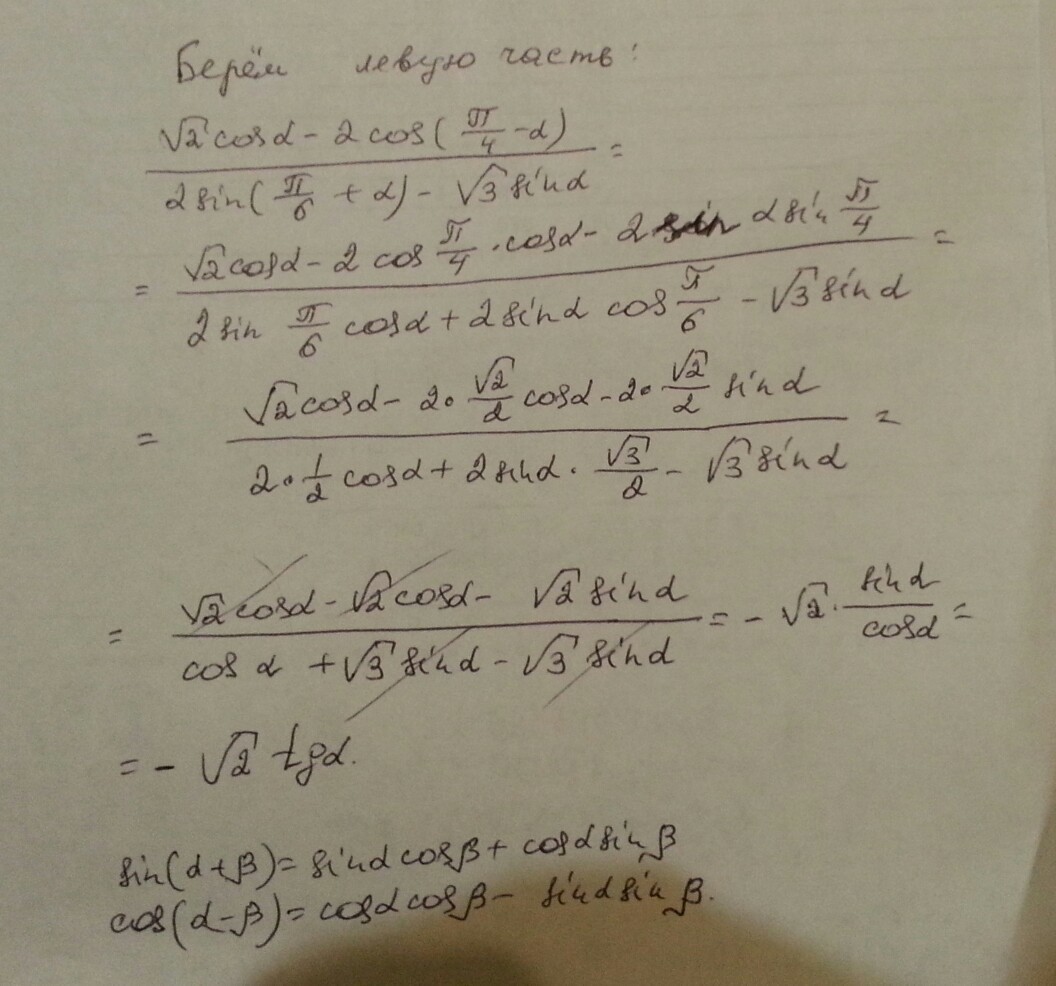 Берём левую часть:
√2 cosα - 2 cos(π/4 - α)
2 sin(π/6 + α) - √3 sinα =
= √2 cosα - 2 cos π/4 · cosα - 2 sin α sin π/4 =
2 sin π/6 cosα + 2 sinα cos π/6 - √3 sinα
= √2 cosα - 2 · √2/2 cosα - 2 · √2/2 sinα =
2 · 1/2 cosα + 2 sinα · √3/2 - √3 sinα
= √2 cosα - √2 cosα - √2 sinα = - √2 · sinα/cosα =
cos α + √3 sinα - √3 sinα
= - √2 tgα.
sin(α+β) = sinα cosβ + cosα sinβ
cos(α-β) = cosα cosβ - sinα sinβ.